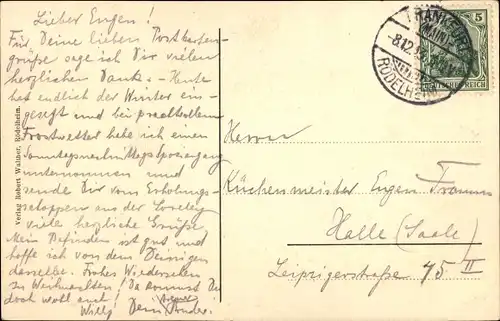 Lieber Eugen!
Für Deine lieben Postkarten-
grüße sage ich Dir vielen
herzlichen Dank. - Heute
hat endlich der Winter ein-
gesetzt und bei prachtvollem
Frostwetter habe ich einen
Sonntagnachmittagsspaziergang
unternommen und
sende Dir vom Erholungs-
schoppen aus der
viele herzliche Grüße.
Mein Befinden ist gut und
hoffe ich von dem Deinigen
dasselbe. Frohes Wiedersehen
zu Weihnachten! Da kommst Du
doch wohl auch!
Willy Dein Bruder.
Verlag Robert Wallner, Rödelheim.
FRANKFURT
(MAIN)
-8.12.
RÖDELHEIM
5
DEUTSCHES REICH
Herrn
Küchenmeister Eugen
Halle (Saale)
Leipzigerstraße 45 II